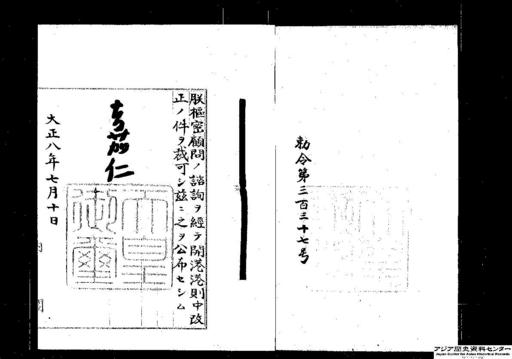 勅令第三百三十七号
朕枢密顧問ノ諮詢ヲ経テ開港港則中改
正ノ件ヲ裁可シ玆ニ之ヲ公布セシム
嘉仁
天皇
御璽
大正八年七月十日
内閣
アジア歴史資料センター
Japan Center for Asian Historical Records